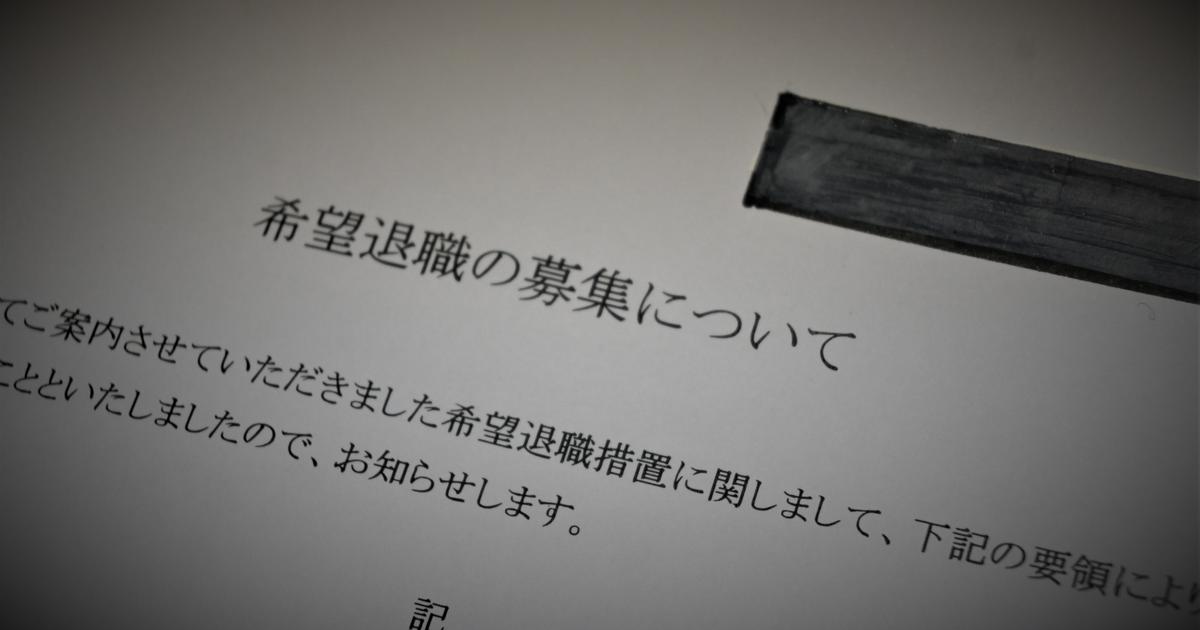 希望退職の募集について
てご案内させていただきました希望退職措置に関しまして、下記の要領により
ことといたしましたので、お知らせします。
記